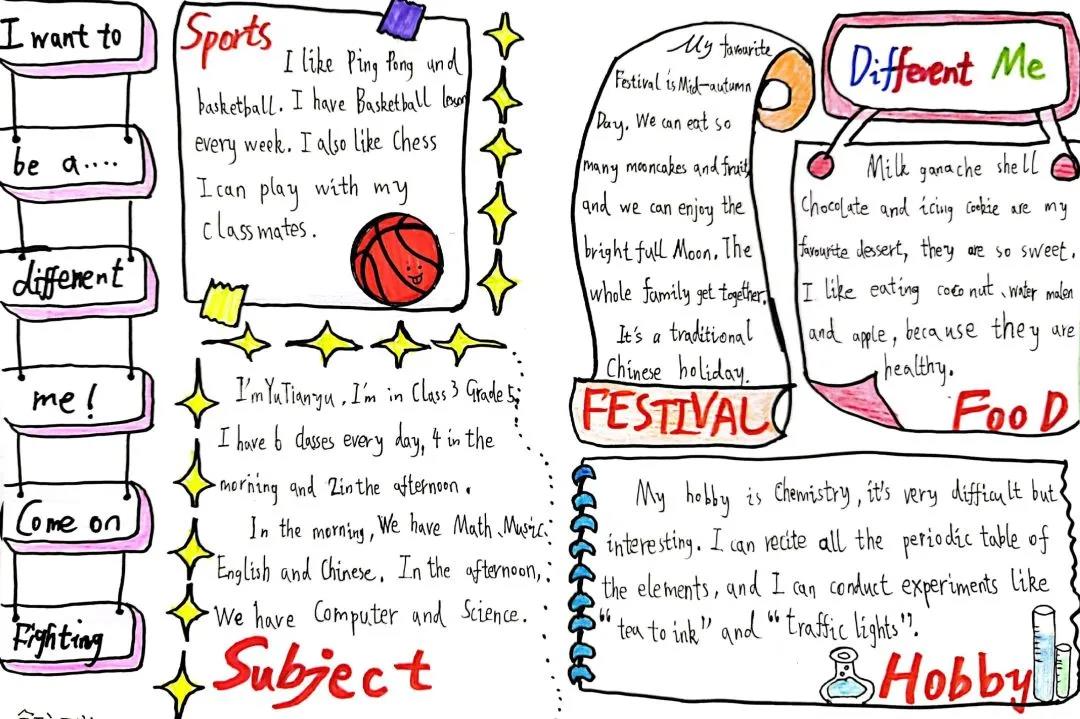 I want to
be a....
different
me!
Come on
Fighting
Sports
I like Ping Pong and
basketball. I have Basketball lesson
every week. I also like Chess
I can play with my
classmates.
I'm YuTianyu, I'm in Class 3 Grade 5.
I have 6 classes every day, 4 in the
morning and 2 in the afternoon.
In the morning, We have Math、Music、
English and Chinese. In the afternoon,
We have Computer and Science.
Subject
My favourite
Festival is Mid-autumn
Day. We can eat so
many mooncakes and fruit,
and we can enjoy the
bright full Moon. The
whole family get together.
It's a traditional
Chinese holiday.
FESTIVAL
Different Me
Milk ganache shell
chocolate and icing cookie are my
favourite dessert, they are so sweet.
I like eating coconut、water malen
and apple, because they are
healthy.
FooD
My hobby is Chemistry, it's very difficult but
interesting. I can recite all the periodic table of
the elements, and I can conduct experiments like
“tea to ink” and “traffic lights”.
Hobby